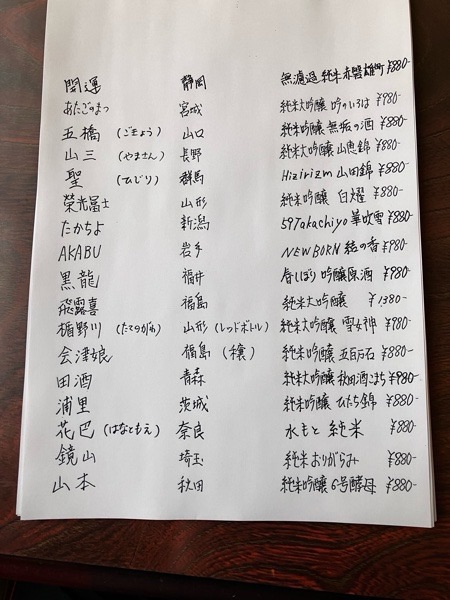 開運 静岡 無濾過 純米 赤磐雄町 ¥880-
あたごのまつ 宮城 純米大吟醸 吟のいろは ¥980-
五橋 (ごきょう) 山口 純米吟醸 無垢の酒 ¥880-
山三 (やまさん) 長野 純米大吟醸 山恵錦 ¥880-
聖 (ひじり) 群馬 Hizirizm 山田錦 ¥880-
榮光冨士 山形 純米吟醸 白燿 ¥880-
たかちよ 新潟 59Takachiyo 華吹雪 ¥880-
AKABU 岩手 NEWBORN 結の香 ¥980-
黒龍 福井 春しぼり 吟醸原酒 ¥980-
飛露喜 福島 純米大吟醸 ¥1380-
楯野川 (たてのがわ) 山形 (レッドボトル) 純米大吟醸 雪女神 ¥980-
会津娘 福島 (穣) 純米吟醸 五百万石 ¥880-
田酒 青森 純米大吟醸 秋田酒こまち ¥980-
浦里 茨城 純米吟醸 ひたち錦 ¥880-
花巴 (はなともえ) 奈良 水もと 純米 ¥880-
鏡山 埼玉 純米おりがらみ ¥880-
山本 秋田 純米吟醸 6号酵母 ¥880-